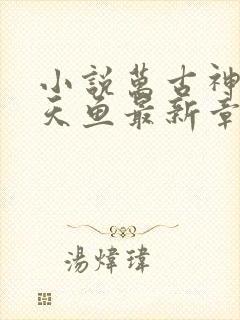 小説萬古神
天魚最新章
湯煒瑋